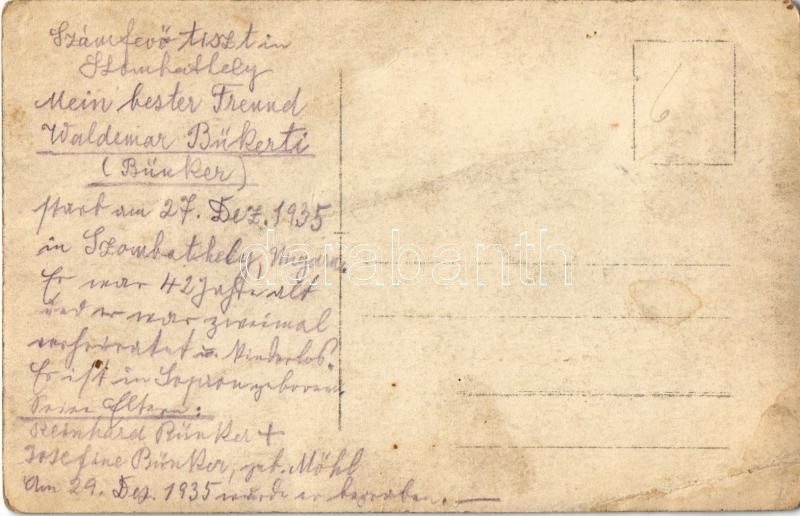 Számfevö tiszt in
Szombathely
Mein bester Freund
Waldemar Bükerti
(Bünker)
starb am 27. Dez. 1935
in Szombathely, Ungarn.
Er war 42 Jahre alt
und er war zweimal
verheiratet u. kinderlos.
Er ist in Sopron geboren.
Seine Eltern:
Reinhard Bünker +
Josefine Bünker, geb. Möhl
Am 29. Dez. 1935 wurde er begraben. —
6
darabanth